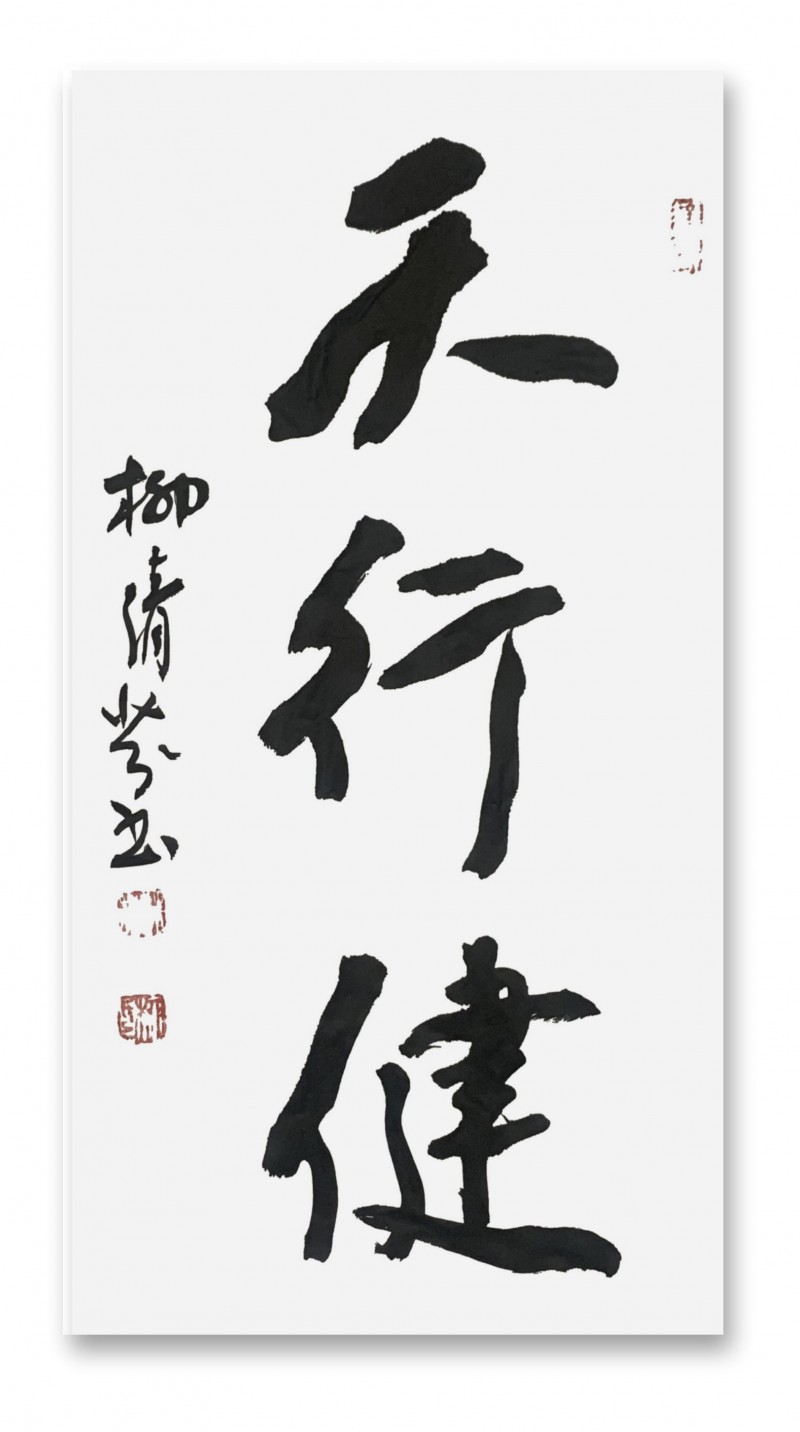 天行健
柳清芬书